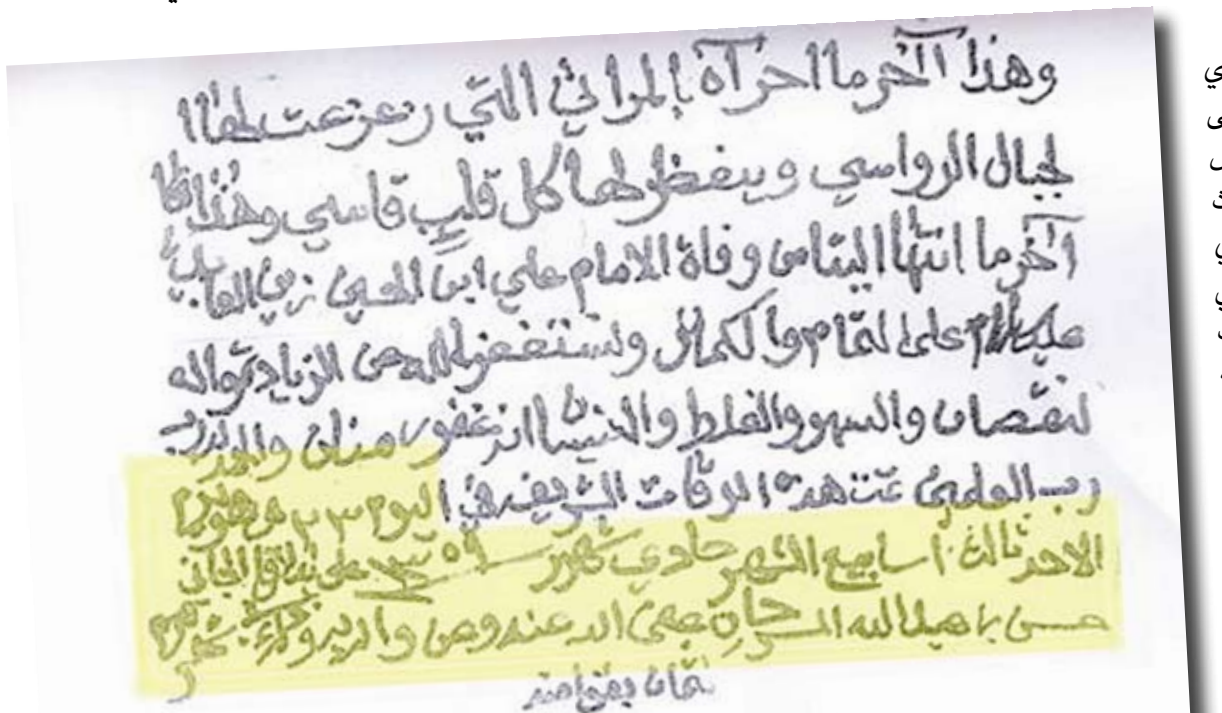 وهذا آخر ما احرآه إلمراثي التي زعزعت لها ا
لجبال الرواسي وينفظر لها كل قلب قاسي وهذا
آخر ما انتها الينا من وفاة الامام علي ابن الحسين زين العابدين
عليه السلام على لتمام والكمال ونستغفر الله من الزيادة واله
لنقصان والسهو والغلط والنسيان انه غفور منان والحمد لله
رب العلمين تمت هذه الورقات الشريفه في اليوم ٢٣ وهو يوم
الاحد ثالث اسابيع الشهر حادي شهور ١٣٥٩ على يد الجاني
حسن با عبد الله السرحان عفى الله عنه وعن والديه